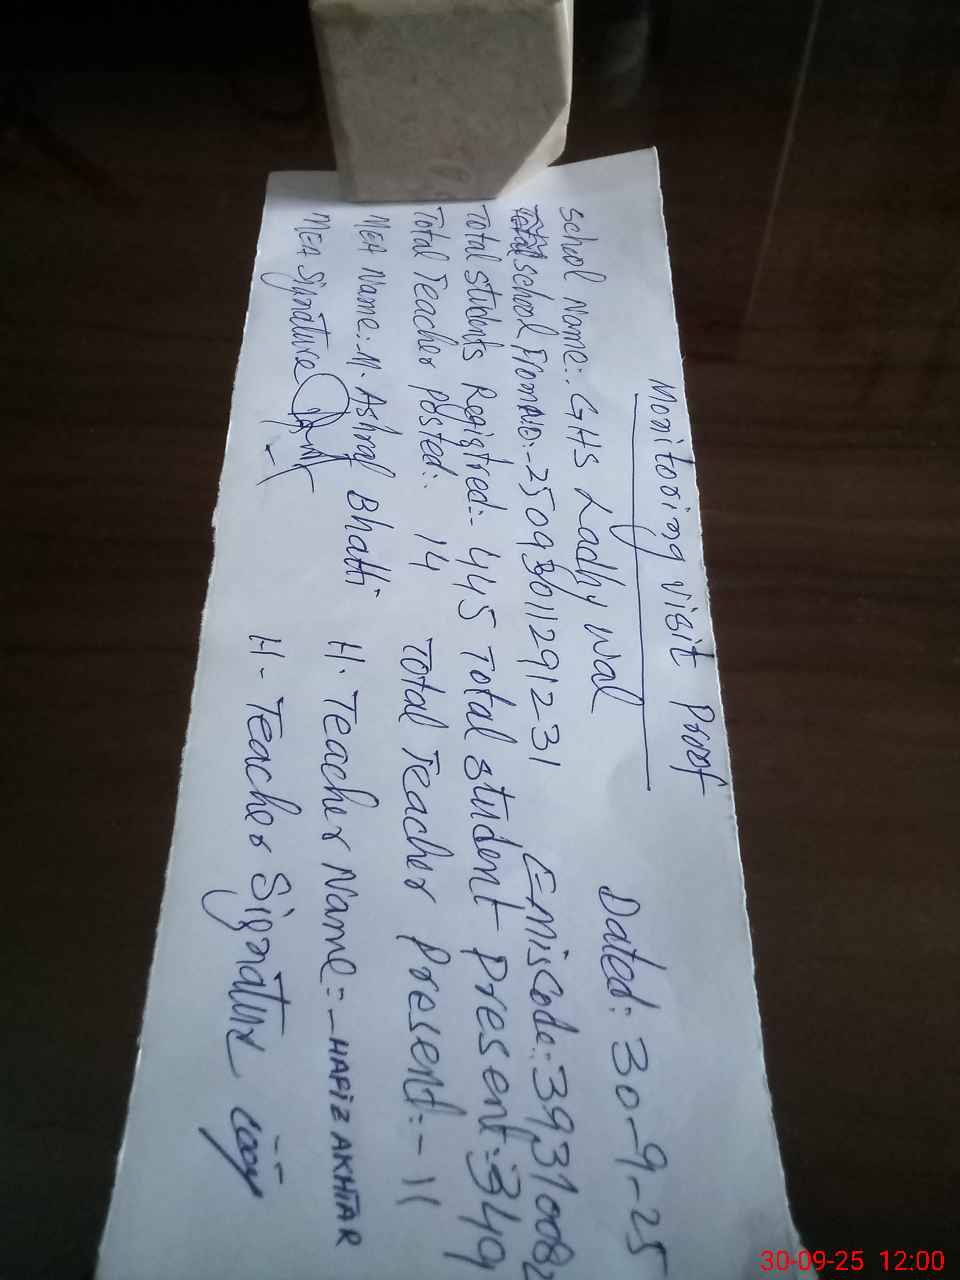 Monitoring visit Proof
School Name:- GHS Ladhy Wal Dated: 30-9-25
Total School From NO:- 25093011291231 Emis Code:- 39310082
Total students Registred:- 445 Total student Present:- 349
Total Teacher posted:- 14 Total Teacher Present:- 11
MEA Name:- M. Ashraf Bhatti H. Teacher Name = - HAFIZ AKHTAR
MEA Signature H- Teacher Signature
30-09-25 12:00